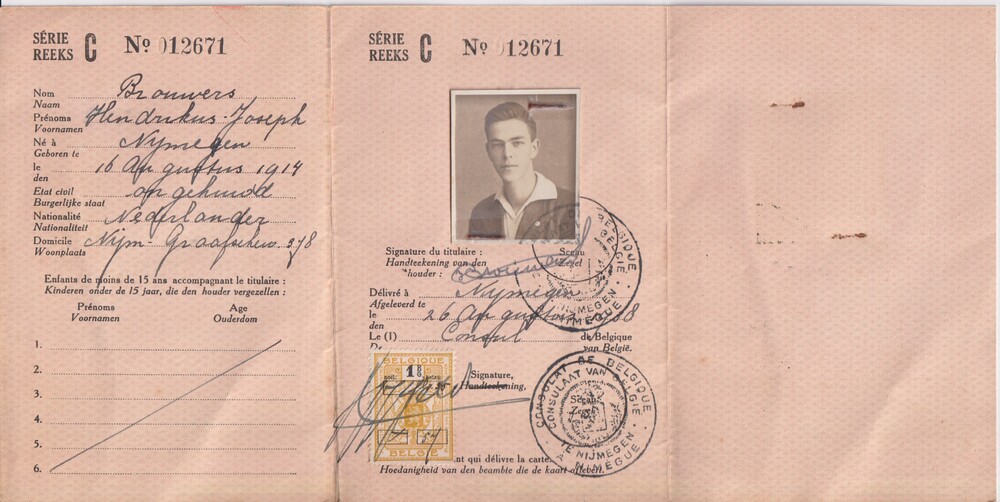 SÉRIE
REEKS C No 012671
Nom
Naam Brouwers
Prénoms
Voornamen Hendrikus-Joseph
Né à
Geboren te Nijmegen
le
den 16 Augustus 1914
Etat civil
Burgerlijke staat ongehuwd
Nationalité
Nationaliteit Nederlander
Domicile
Woonplaats Nijm- 378
Enfants de moins de 15 ans accompagnant le titulaire :
Kinderen onder de 15 jaar, die den houder vergezellen :
Prénoms Age
Voornamen Ouderdom
1.
2.
3.
4.
5.
6.
SÉRIE
REEKS C No 012671
Signature du titulaire :
Handteekening van den
houder : Brouwers
Sceau
Zegel
BELGIQUE
BELGIË
NIJMEGEN
NIMÈGUE
Délivré à
Afgeleverd te Nijmegen
le
den 26 Augustus
Le (1) Consul de Belgique
van België.
BELGIQUE
BELGIË
Signature,
Handteekening,
CONSULAT DE BELGIQUE
CONSULAAT VAN BELGIË
Sceau
Zegel
TE NIJMEGEN
A NIMÈGUE
nt qui délivre la carte.
Hoedanigheid van den beambte die de kaart aflevert.